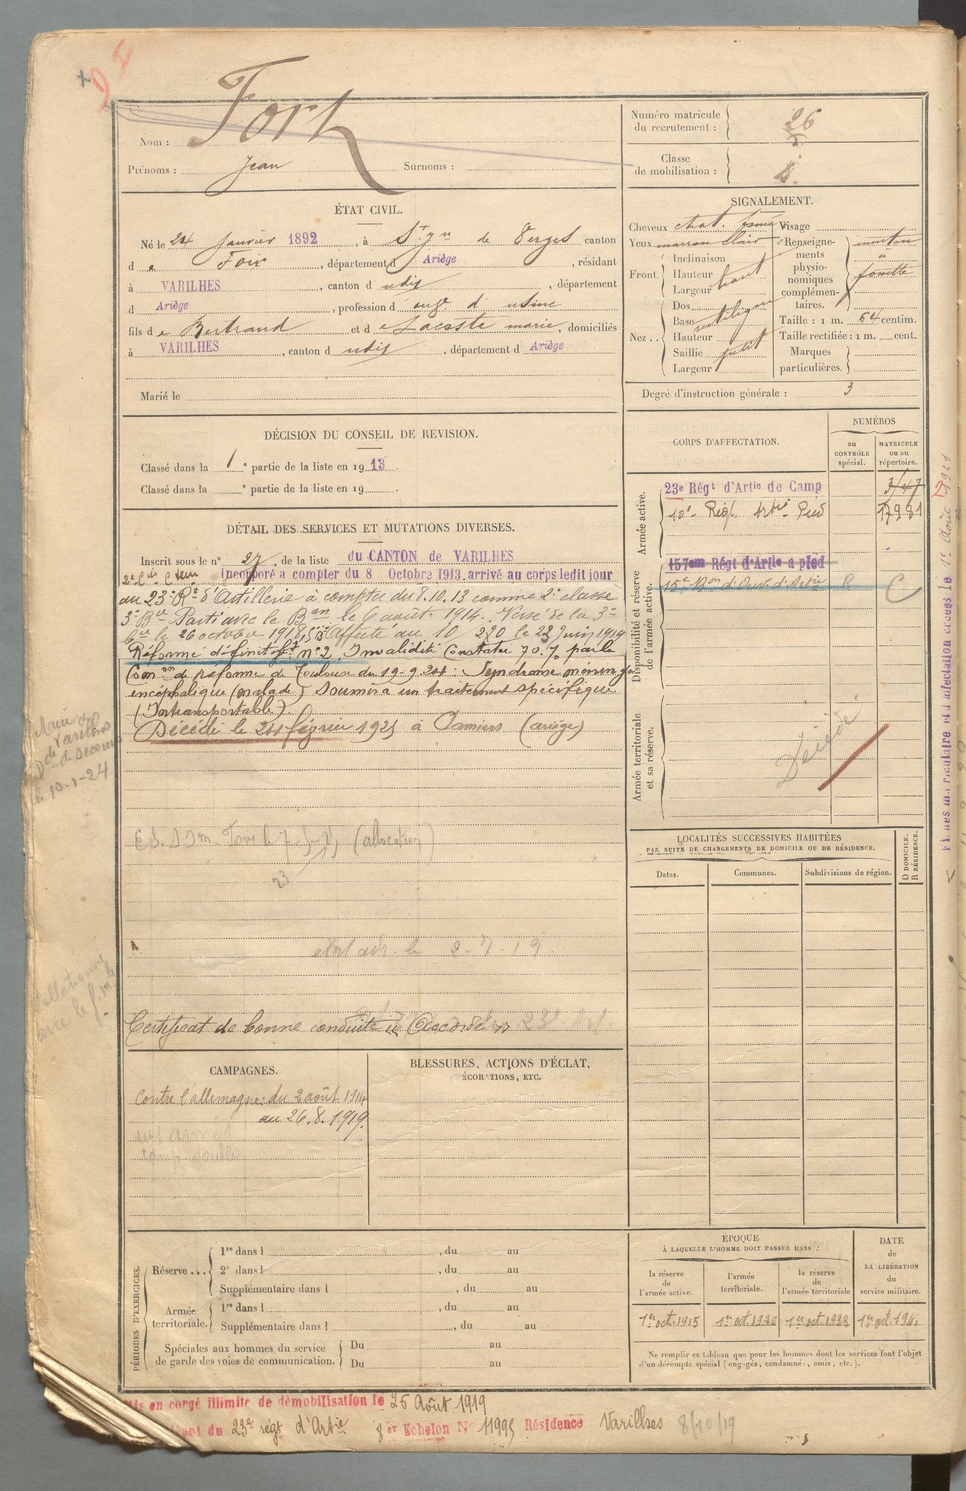 Nom : Fort
Prénoms : Jean Surnoms :
Numéro matricule du recrutement : 26
Classe de mobilisation :
ÉTAT CIVIL.
Né le 24 Janvier 1892, à St Jn de Verges canton
d e Foix, département d Ariège, résidant
à VARILHES, canton d udit, département
d Ariège, profession d d usine
fils d e Bertrand et d e Lacoste marie, domiciliés
à VARILHES, canton d udit, département d Ariège
Marié le
SIGNALEMENT.
Cheveux chat. foncé
Yeux marron clair
Front
Inclinaison
Hauteur haut
Largeur
Nez
Dos
Base
Hauteur
Saillie petit
Largeur
Visage
Renseignements physionomiques complémentaires. menton à fossette
Taille : 1 m. 64 centim.
Taille rectifiée : 1 m. cent.
Marques particulières.
Degré d'instruction générale : 3
DÉCISION DU CONSEIL DE REVISION.
Classé dans la 1e partie de la liste en 1913.
Classé dans la e partie de la liste en 19
DÉTAIL DES SERVICES ET MUTATIONS DIVERSES.
Inscrit sous le n° 27 de la liste du CANTON de VARILHES
Incorporé a compter du 8 Octobre 1913. arrivé au corps ledit jour
au 23e Rt d'Artillerie à compter du 8.10.13 comme 2e classe
3e Bie Parti avec le Bon le 6 août 1914. Versé de la 3e
Bie le 26 octobre 1918, Affecté au 10 le 22 Juin 1919
Réforme définitive n°2. Invalidité Constatée 70 % par la
Con on de Réforme de Toulouse du 19-9-24 : Syndrome méningo
encéphalique (malade) Soumis à un traitement spécifique
(Intransportable)
Décédé le 24 février 1925 à Pamiers (ariège)
le 10-1-24
(allocation)
le 2-7-19
Certificat de bonne conduite "Accordé"
CORPS D'AFFECTATION.
NUMÉROS
AU CONTRÔLE spécial.
MATRICULE ou au répertoire.
Armée active.
23e Régt d'Artie de Camp
10e Régt Artie Pied
Disponibilité et réserve de l'armée active.
157eme Régt d'Artie a pied
Armée territoriale et sa réserve.
Décédé
LOCALITÉS SUCCESSIVES HABITÉES
PAR SUITE DE CHANGEMENTS DE DOMICILE OU DE RÉSIDENCE.
D DOMICILE. R RÉSIDENCE.
Dates. Communes. Subdivisions de région.
CAMPAGNES.
Contre l'allemagne : du 2 août 1914
au 26.8.1919.
BLESSURES, ACTIONS D'ÉCLAT,
ÉCORATIONS, ETC.
PÉRIODES D'EXERCICES.
Réserve ...
1re dans l , du au
2e dans l , du au
Supplémentaire dans l , du au
Armée territoriale.
1re dans l , du au
Supplémentaire dans l , du au
Spéciales aux hommes du service de garde des voies de communication.
Du au
Du au
ÉPOQUE
À LAQUELLE L'HOMME DOIT PASSER DANS :
la réserve de l'armée active.
l'armée territoriale.
la réserve de l'armée territoriale
DATE de LA LIBÉRATION du service militaire.
1er oct. 1915
Ne remplir ce tableau que pour les hommes dont les services font l'objet
d'un décompte spécial (engagés, condamnés, omis, etc.).
Mis en congé illimité de démobilisation le 26 Août 1919
du 23e régt d'Artie 8er Echelon N° 11995 Résidence Varilhes 8/10/19